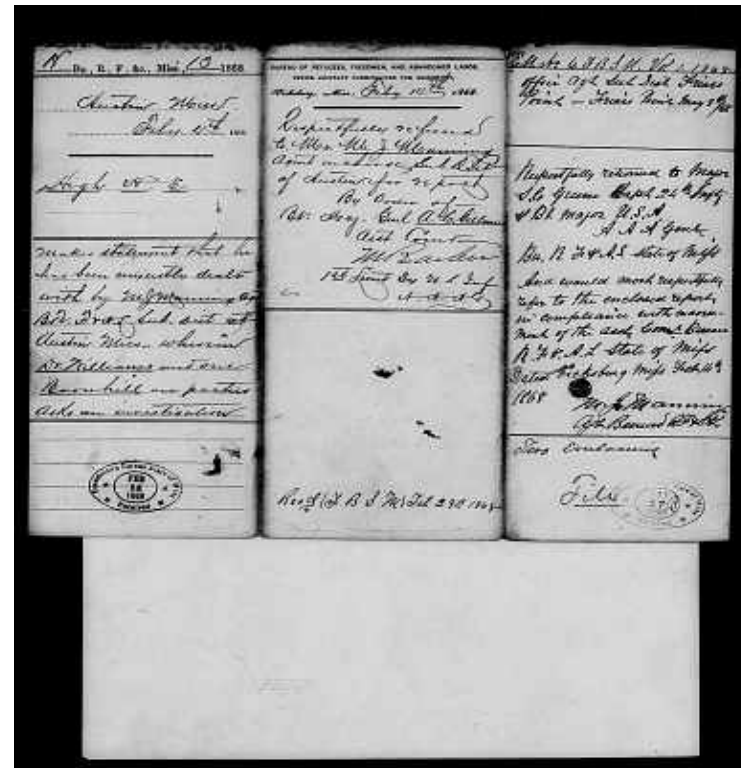 H Bu., R. F. &c., Miss, 13 1868
Austin Miss
Feby 10th 186
High W. E.
makes statement that he
has been unjustly dealt
with by M J Manning agt
B R F & A L Sub dist at
Austin Miss. wherein
Dr Williams and one
Barnhill are parties
asks an investigation
FEB
14
1868
BUREAU OF REFUGEES, FREEDMEN, AND ABANDONED LANDS,
OFFICE ASSISTANT COMMISSIONER FOR MISSISSIPPI,
Vicksburg, Miss. Feby 14th, 1868
Respectfully referred
to Mr. M. J. Manning
Agent in charge Sub Dist
of Austin for report
By Order of
Bt. Brig. Genl A. C. Gillem
Asst Comr
1st Lieut
A. A. A. G.
Recd (F B S M) Feb 29th 1868
office Agt Sub Dist Friars
Point
Respectfully returned to Major
S. C. Greene Capt 24th Infty
& Bt. Major U.S.A
A A A Genl
Bu. R F & A L State of Miss
And would most respectfully
refer to the enclosed report
in compliance with
of the asst Comr Bureau
R. F. & A. L State of Miss
Dated Vicksburg Miss Feb 14th
1868
M J Manning
Agt Bureau
Two Enclosures
File